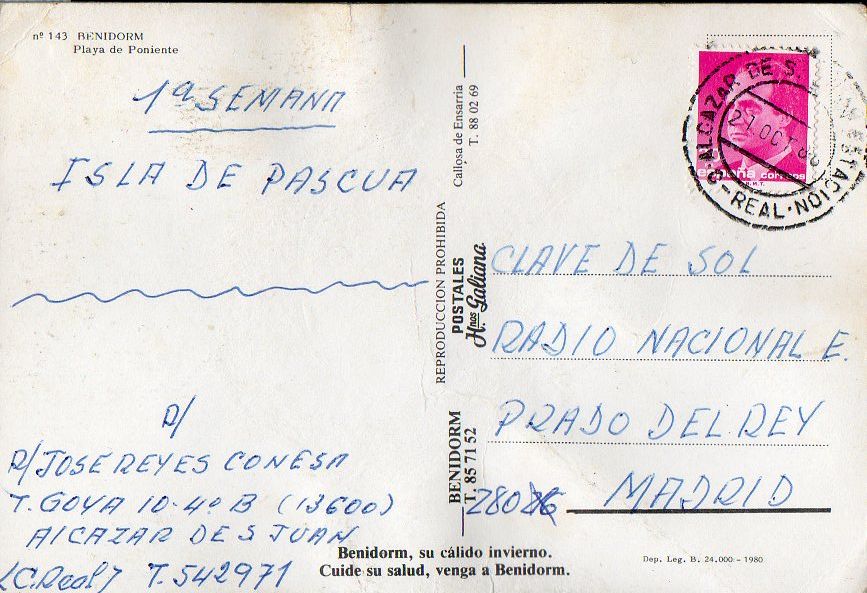 nº 143 BENIDORM
Playa de Poniente
1ª SEMANA
ISLA DE PASCUA
R/
R/ JOSE REYES CONESA
T. GOYA 10-4º B (13600)
ALCAZAR DE S JUAN
(C. Real) T. 542971
Benidorm, su cálido invierno.
Cuide su salud, venga a Benidorm.
REPRODUCCION PROHIBIDA
Callosa de Ensarria
T. 88 02 69
POSTALES
H.nos Galiana
BENIDORM
T. 85 71 52
ALCAZAR DE S.
ESTACION
REAL
27 OCT
españa correos
CLAVE DE SOL
RADIO NACIONAL E.
PRADO DEL REY
MADRID
Dep. Leg. B. 24.000 - 1980